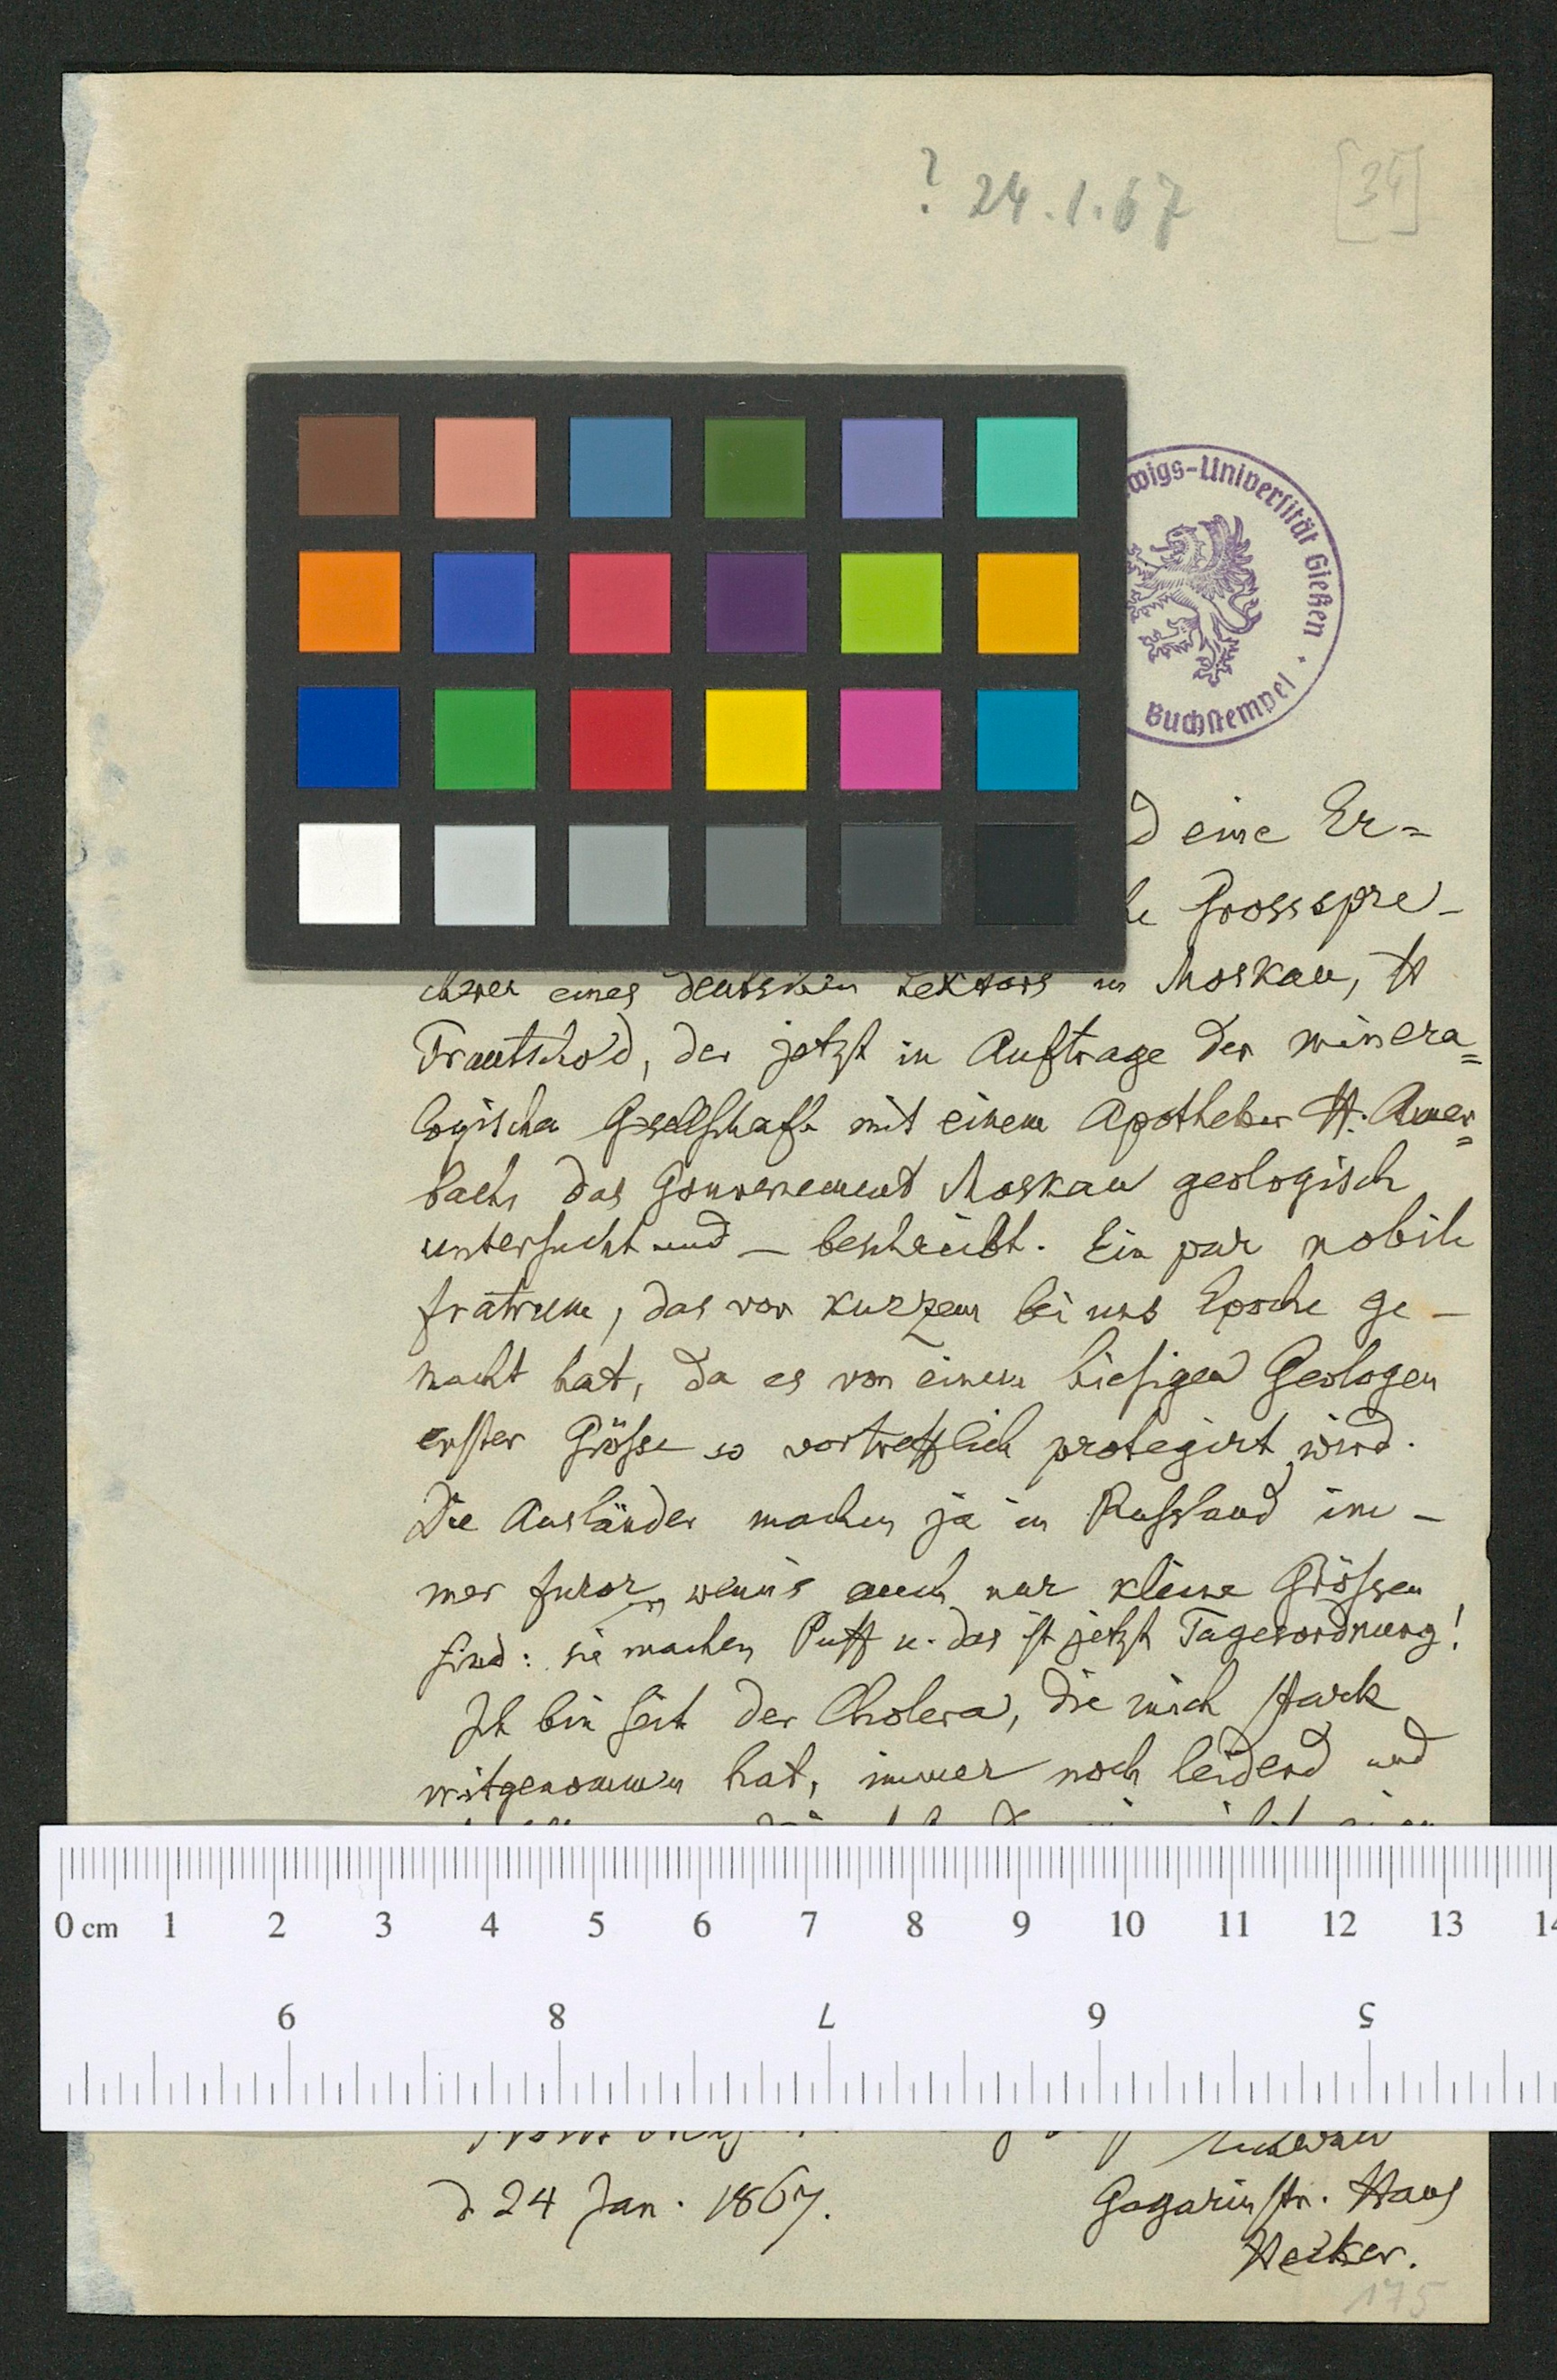 ? 24.1.67
[34]
wigs-Universität Gießen · Buchstempel
d eine Er=
Grossspre-
cherei eines deutschen Lektors in Moskau, H
Trautschold, der jetzt in Auftrage der minera=
logischen Gesellschaft mit einem Apotheker H. Auer=
bach das Gouvernement Moskau geologisch
untersucht und – beschreibt. Ein par nobile
fratrum, das vor kurzem bei uns Epoche ge-
macht hat, da es von einem hiesigen Geologen
erster Grösse so vortrefflich protegirt wird.
Die Ausländer machen ja in Russland im-
mer furor, wenn's auch nur kleine Grössen
sind: sie machen Puff u. das ist jetzt Tagesordnung!
Ich bin seit der Cholera, die mich stark
mitgenommen hat, immer noch leidend und
0 cm 1 2 3 4 5 6 7 8 9 10 11 12 13 14
9 8 7 6 5
d 24 Jan. 1867.
Gagarinstr. Haus
Hecker.
175